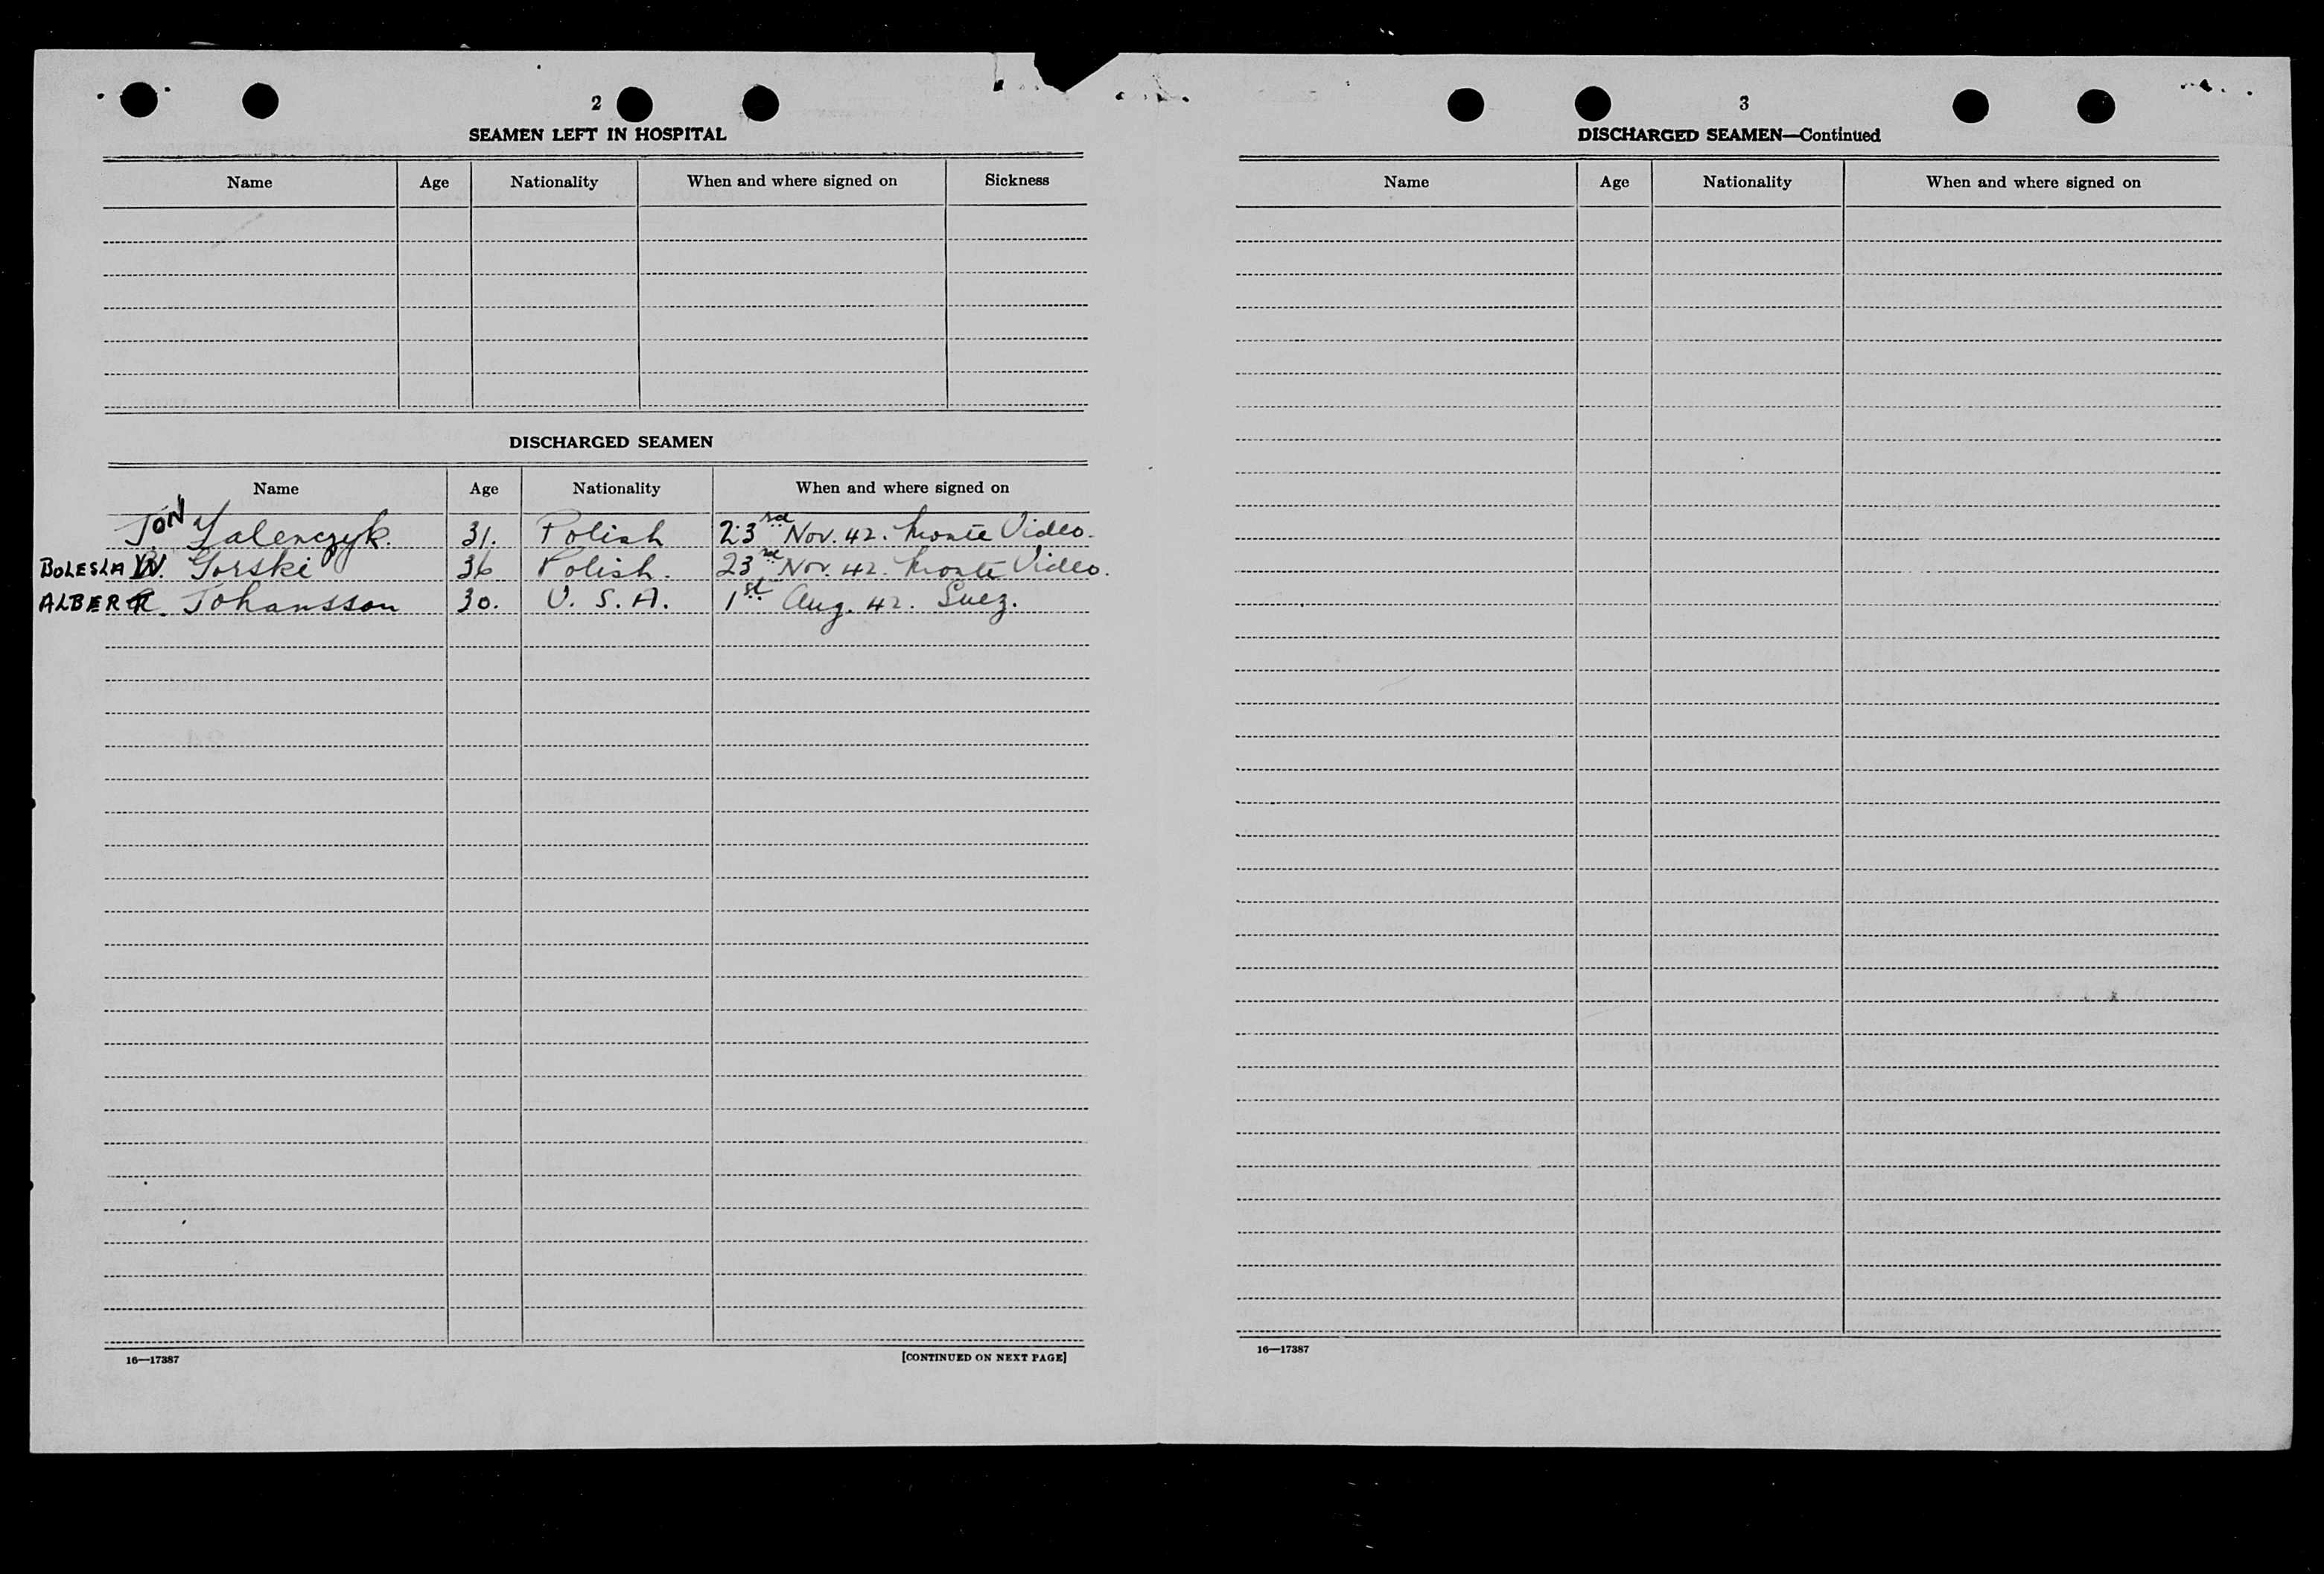 2
SEAMEN LEFT IN HOSPITAL
Name Age Nationality When and where signed on Sickness
DISCHARGED SEAMEN
Name Age Nationality When and where signed on
JON Zalenczyk. 31. Polish 23rd Nov. 42. Monte Video.
BOLESLAW. Gorski 36 Polish. 23rd Nov. 42. Monte Video.
ALBERT Johansson 30. U. S. A. 1st Aug. 42. Suez.
16—17387 [CONTINUED ON NEXT PAGE]
3
DISCHARGED SEAMEN—Continued
Name Age Nationality When and where signed on
16—17387